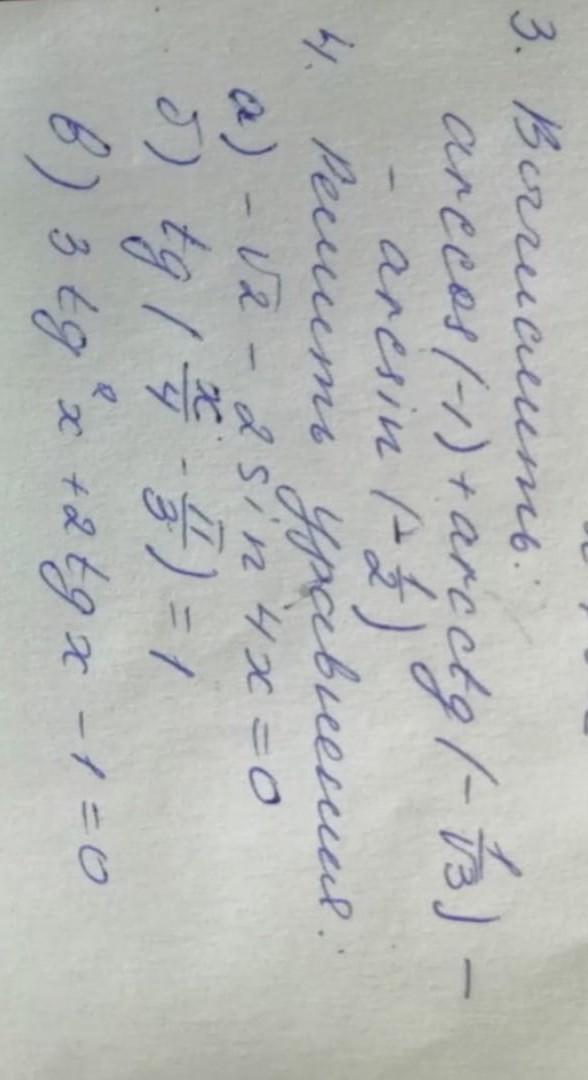 3. Вычислить:
arccos(-1) + arcctg(-1/√3) -
- arcsin(-1/2)
4. Решить уравнения:
а) -√2 - 2 sin 4x = 0
б) tg(x/4 - π/3) = 1
в) 3 tg² x + 2 tg x - 1 = 0